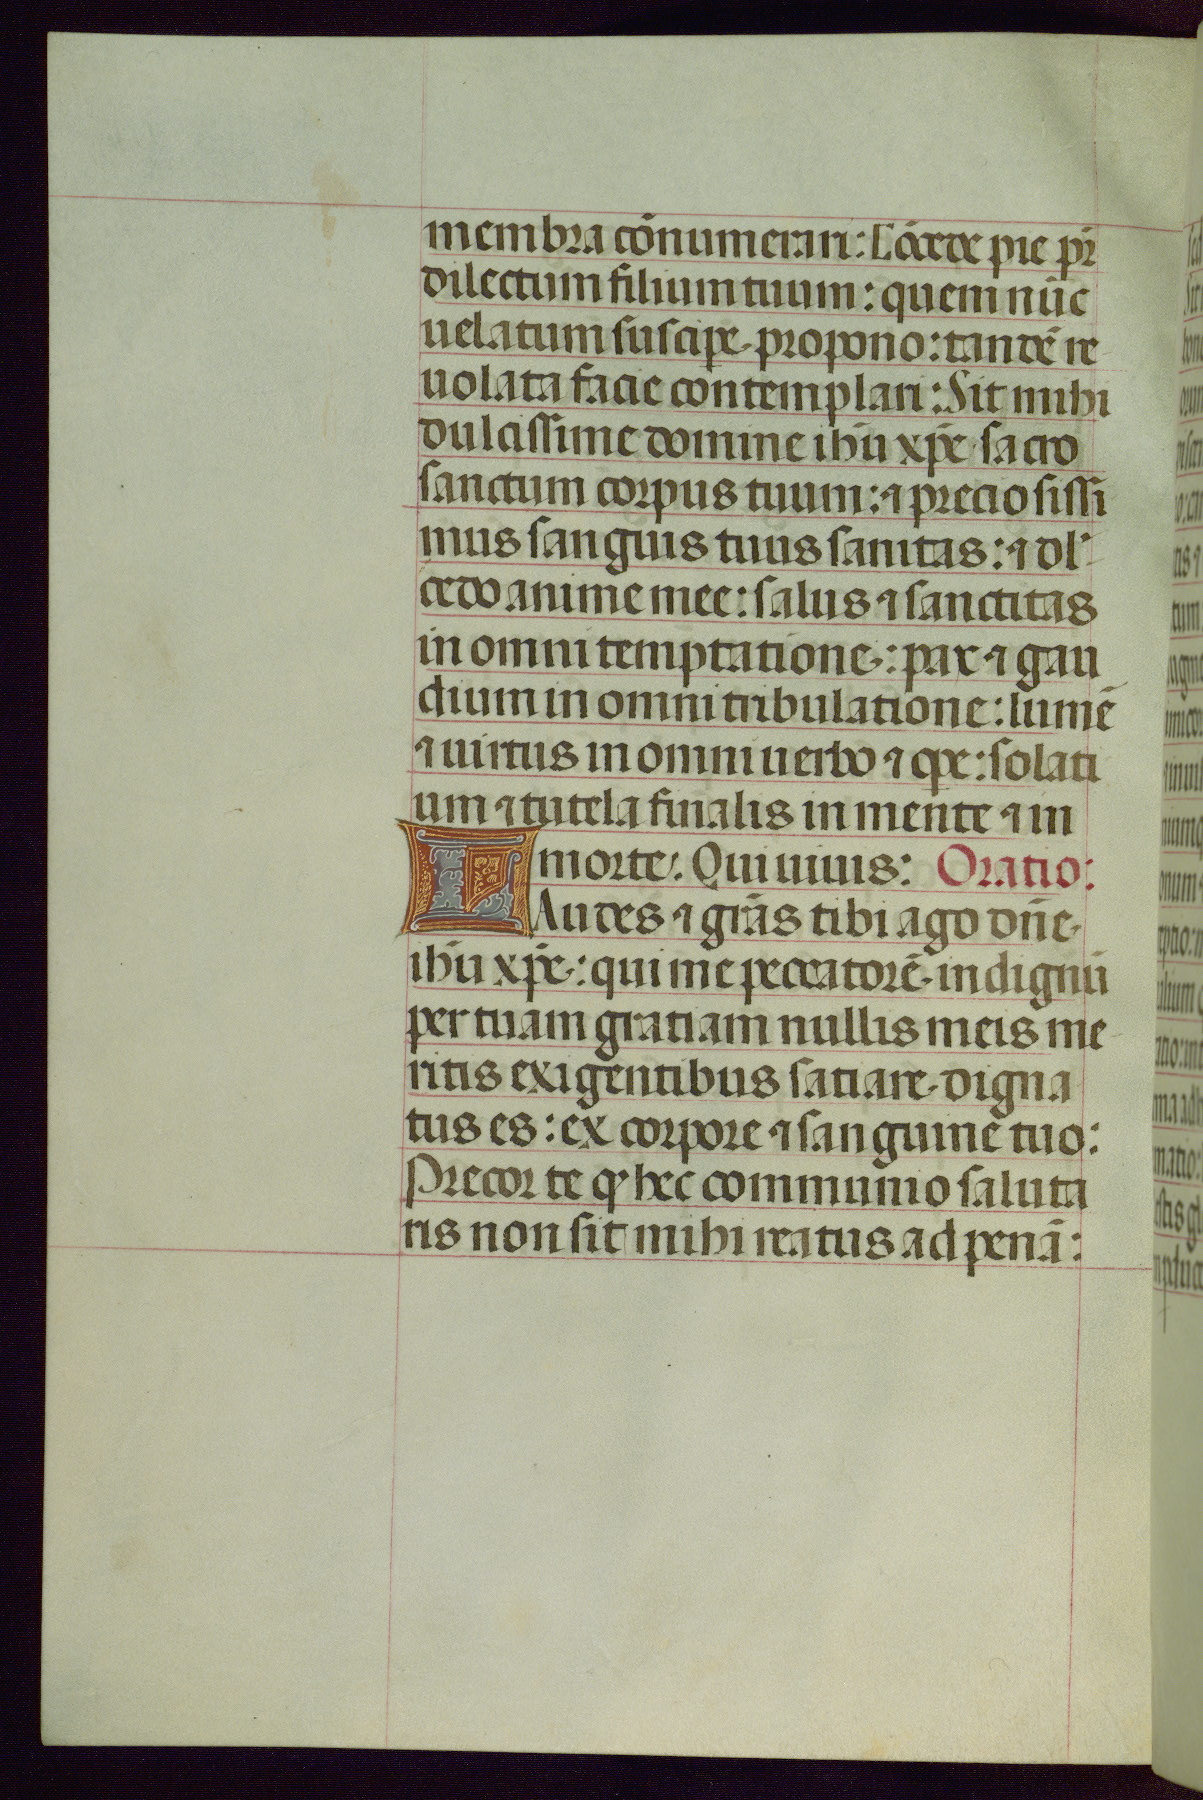 membra cōnumerari: Cōcede pie pr̄
dilectum filium tuum: quem nūc
uelatum suscipe propono: tandē re
uolata facie contemplari: Sit mihi
dulcissime domine ihū xp̄e sacro
sanctum corpus tuum: ⁊ preciosissi
mus sanguis tuus sanitas: ⁊ dl'
cedo anime mee: salus ⁊ sanctitas
in omni temptatione: pax ⁊ gau
dium in omni tribulatione: lumē
⁊ uirtus in omni uerbo ⁊ ope: solati
um ⁊ tutela finalis in mente ⁊ in
morte. Qui uiuis: Oratio:
LAudes ⁊ grās tibi ago dn̄e
ihū xp̄e: qui me peccatorē indignū
per tuam gratiam nullis meis me
ritis exigentibus satiare digna
tus es: ex corpore ⁊ sanguine tuo:
Precor te qͥ hec communio saluta
ris non sit mihi reatus ad penā: